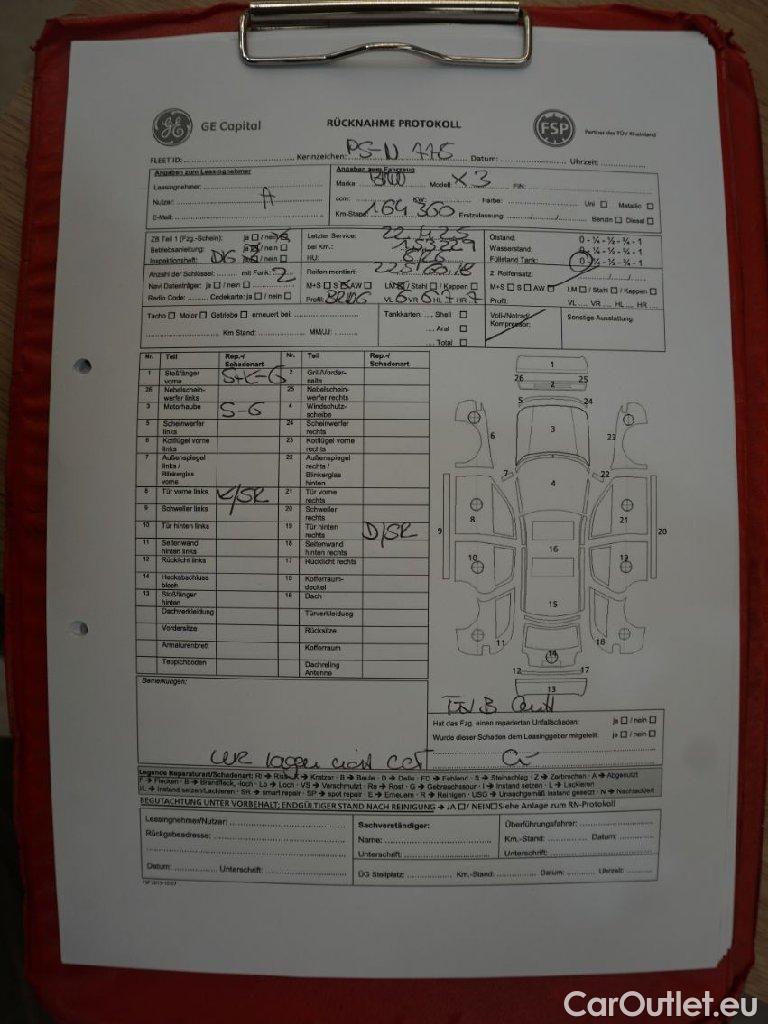 GE Capital
RÜCKNAHME PROTOKOLL
FSP
Partner des TÜV Rheinland
FLEET ID: Kennzeichen: PS-N Datum: Uhrzeit:
Angaben zum Leasingnehmer
Angaben zum Fahrzeug
Leasingnehmer:
Marke BMW Modell: X3 FIN:
Nutzer:
ccm: KW: Farbe: Uni Metallic
E-Mail:
Km-Stand: 164 360 Erstzulassung Benzin Diesel
ZB Teil 1 (Fzg.-Schein): ja / nein
Letzter Service:
Ölstand: 0 - ¼ - ½ - ¾ - 1
Betriebsanleitung: ja / nein
bei Km.:
Wasserstand: 0 - ¼ - ½ - ¾ - 1
Inspektionsheft: DIG ja / nein
HU:
Füllstand Tank: 0 - ¼ - ½ - ¾ - 1
Anzahl der Schlüssel: mit Funk: 2
Reifen montiert:
2. Reifensatz
Navi Datenträger: ja / nein
M+S S AW LM / Stahl / Kappen
M+S S AW LM / Stahl / Kappen
Radio Code: Codekarte: ja / nein
Profil: VL 6 VR 6 HL 7 HR 7
Profil: VL VR HL HR
Tacho Motor Getriebe erneuert bei:
Km Stand: MM/JJ:
Tankkarten: Shell
Aral
Total
Voll-/Notrad/
Kompressor:
Sonstige Ausstattung:
Nr. Teil Rep.-/ Schadenart Nr. Teil Rep.-/ Schadenart
1 Stoßfänger vorne 2 Grill/Vorderseite
26 Nebelscheinwerfer links 25 Nebelscheinwerfer rechts
3 Motorhaube S-G 4 Windschutzscheibe
5 Scheinwerfer links 24 Scheinwerfer rechts
6 Kotflügel vorne links 23 Kotflügel vorne rechts
7 Außenspiegel links / Blinkerglas vorne 22 Außenspiegel rechts / Blinkerglas hinten
8 Tür vorne links K/SR 21 Tür vorne rechts
9 Schweller links 20 Schweller rechts
10 Tür hinten links 19 Tür hinten rechts D/SR
11 Seitenwand hinten links 18 Seitenwand hinten rechts
12 Rücklicht links 17 Rücklicht rechts
14 Heckabschlussblech 15 Kofferraumdeckel
13 Stoßfänger hinten 16 Dach
Dachverkleidung Türverkleidung
Vordersitze Rücksitze
Armaturenbrett Kofferraum
Teppichboden Dachreling Antenne
1
26 25
2
5 24
3
6 23
7 22
4
8 21
9 20
16
10 19
15
11 18
14
12 17
13
Bemerkungen:
Hat das Fzg. einen reparierten Unfallschaden: ja / nein
Wurde dieser Schaden dem Leasinggeber mitgeteilt: ja / nein
Legende Reparaturart/Schadenart: RI → Riss · K → Kratzer · B → Beule · D → Delle · FD → Fehlend · S → Steinschlag · Z → Zerbrochen · A → Abgenutzt
F → Flecken · B → Brandfleck, -loch · Lo → Loch · VS → Verschmutzt · Ro → Rost · G → Gebrauchsspur · I → Instand setzen · L → Lackieren
IL → Instand setzen/Lackieren · SR → smart repair · SP → spot repair · E → Erneuern · R → Reinigen · USG → Unsachgemäß instand gesetzt · N → Nachlackiert
BEGUTACHTUNG UNTER VORBEHALT: ENDGÜLTIGER STAND NACH REINIGUNG → JA / NEIN Siehe Anlage zum RN-Protokoll
Leasingnehmer/Nutzer:
Rückgabeadresse:
Datum: Unterschrift:
Sachverständiger:
Name:
Unterschrift:
Überführungsfahrer:
Km.-Stand: Datum:
Unterschrift:
ÜG Stellplatz: Km.-Stand: Datum: Uhrzeit:
CarOutlet.eu